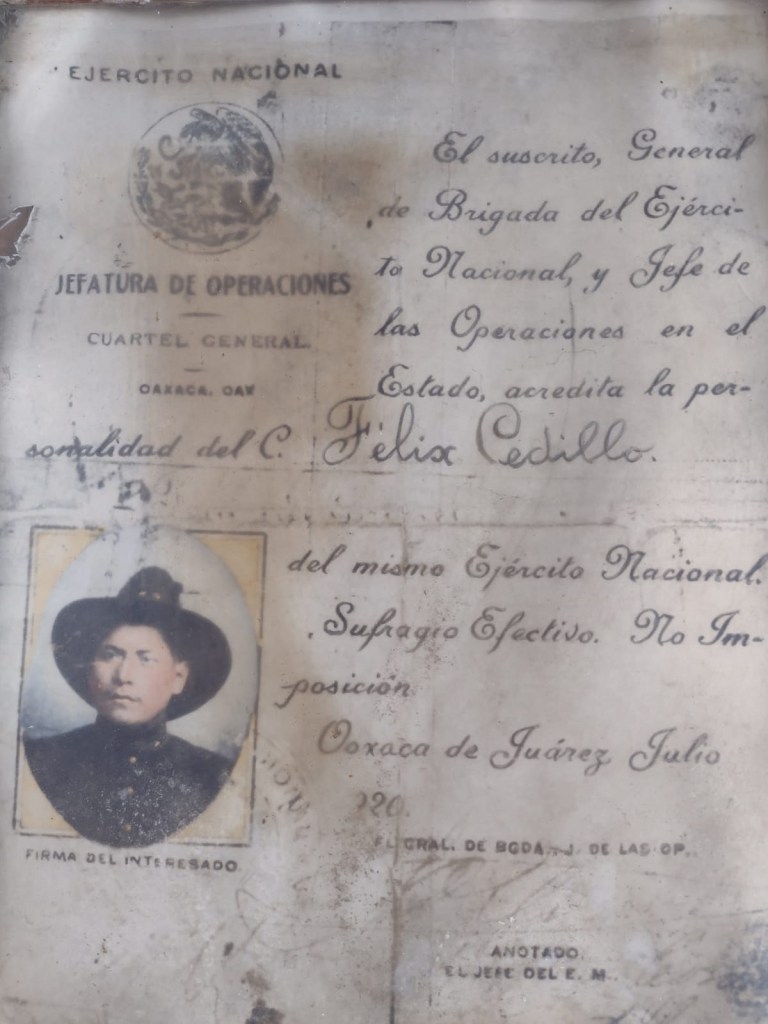 EJERCITO NACIONAL
JEFATURA DE OPERACIONES
CUARTEL GENERAL
OAXACA, OAX
El suscrito, General
de Brigada del Ejérci-
to Nacional, y Jefe de
las Operaciones en el
Estado, acredita la per-
sonalidad del C. Félix Cedillo.
del mismo Ejército Nacional.
Sufragio Efectivo. No Im-
posición
Oaxaca de Juárez Julio
920.
FIRMA DEL INTERESADO
EL GRAL. DE BGDA. J. DE LAS OP.
ANOTADO.
EL JEFE DEL E. M.